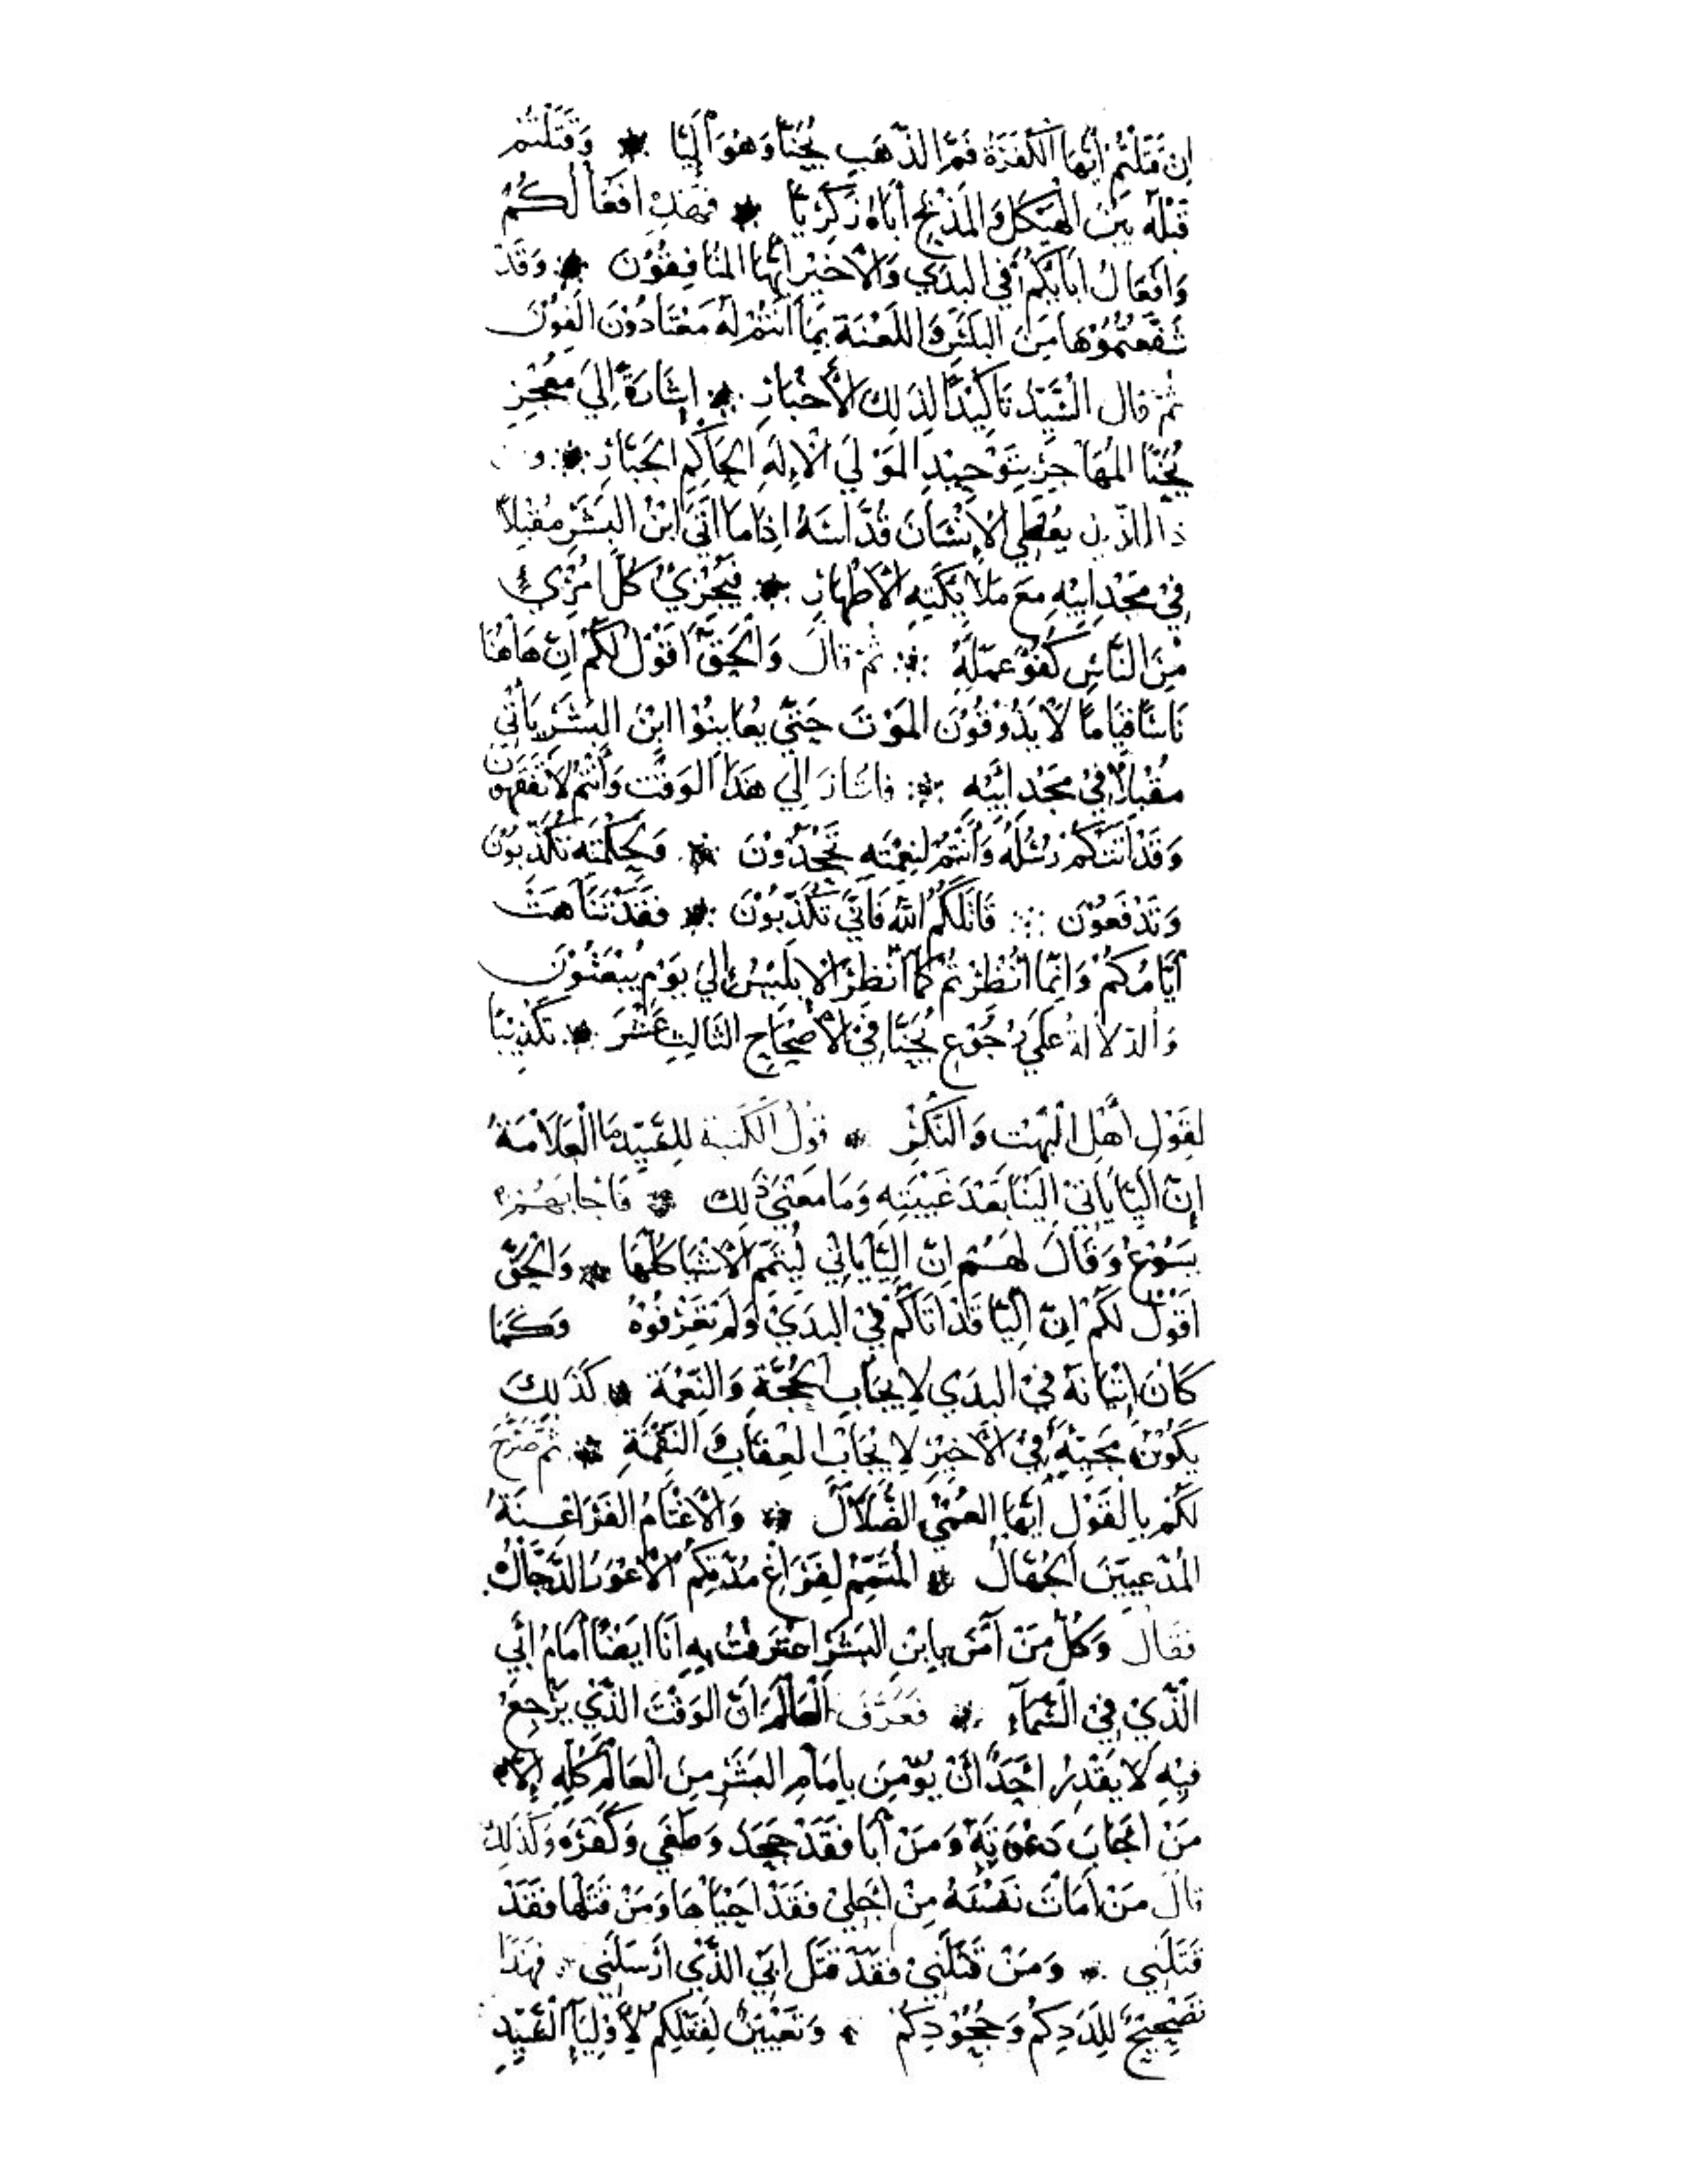 ان قتلتم ايها الكفرة فم الذهب يحنا وهو اليا * وقتلتم
قبله بين الهيكل والمذبح اباه زكريا * فهذه افعالكم
وافعال ابايكم في البدي والاخير ايها المنافقون * وقد
شفعتموها من البلس واللعنة بما انتم له معتادون الفون
ثم قال السيد تاكيدا لذلك الأخبار * اشارة الي معجز
يحنا المهاجر بتوحيد المولي الاله الحاكم الجبار *
ذا الذي يعطي الانسان قداسه اذا ما اتي ابن البشر مقبلا
في مجد ابيه مع ملايكته الاطهار * فيجزي كل امرئ
من الناس كفو عمله * ثم قال والحق اقول لكم ان هاهنا
ناسا قياما لا يذوقون الموت حتي يعاينوا ابن البشر ياتي
مقبلا في مجد ابيه * فاشار الي هذا الوقت وانتم لا تفقهون
وقد اتتكم رسله وانتم لنعمته تجحدون * وبحكمته تكذبون
وتدفعون * قاتلكم الله فاني تكذبون * فقد تناهت
ايامكم وانما انظرتم كما انظر الابليس الي يوم يبعثون
والدلالة علي رجوع يحنا في الاصحاح الثالث عشر * تكذيبا
لقول أهل البهت والنكر * قول الكتبة للسيد ما العلامة
إن اليا ياتي الينا بعد غيبته وما معني ذلك * فاجابهم
يسوع وقال لهم ان اليا ياتي ليتمم الاشيا كلها * والحق
اقول لكم ان اليا قد اتاكم في البدي ولم تعرفوه وكما
كان اتيانه في البدي لايجاب الحجة والنعمة * كذلك
يكون مجيه في الاخير لايجاب العقاب والنقمة * ثم صرح
لكم بالقول ايها العمي الضلال * والاغتام الفراعنة
المدعيين الجهال * المتمم لفراغ مدتكم الاعور الدجال
فقال وكل من آمن بابن البشر اعترفت به انا ايضا امام ابي
الذي في السماء * فعرف العالم ان الوقت الذي يرجع
فيه لا يقدر احدا ان يؤمن بامام البشر من العالم كله إلا
من اجاب دعوته ومن أبا فقد جحد وطغي وكفره وكذلك
قال من امات نفسه من اجلي فقد احياها ومن قتلها فقد
قتلني * ومن قتلني فقد قتل ابي الذي ارسلني * فهذا
تصحيح للددكم وجحودكم * وتعيين لقتلكم لاوليا السيد